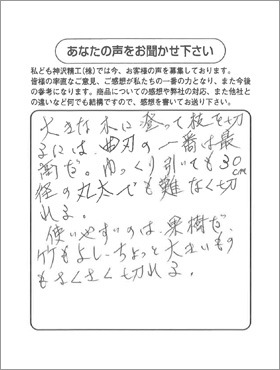 あなたの声をお聞かせ下さい
私ども神沢精工(株)では今、お客様の声を募集しております。
皆様の率直なご意見、ご感想が私たちの一番の力となり、また今後
の参考になります。商品についての感想や弊社の対応、また他社と
の違いなど何でも結構ですので、感想を書いてお送り下さい。
大きな木に登って枝を切
るには、曲刃の一番は最
高だ。ゆっくり引いても30cm
径の丸太でも難なく切
れる。
使いやすいのは、果樹だ、
竹もよし、ちょっと大きいもの
もさくさく切れる。